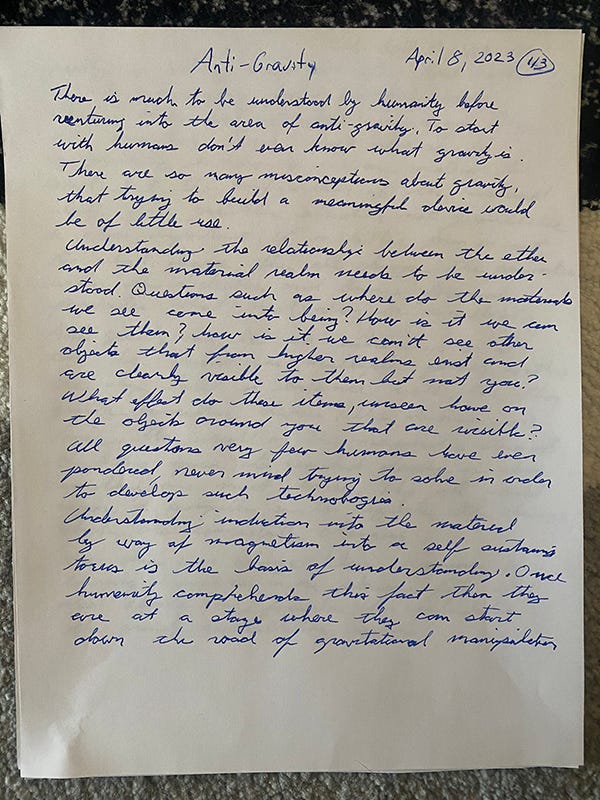 Anti-Gravity April 8, 2023 1/3
There is much to be understood by humanity before
venturing into the area of anti-gravity. To start
with humans don't even know what gravity is.
There are so many misconceptions about gravity,
that trying to build a meaningful device would
be of little use.
Understanding the relationship between the ether
and the material realm needs to be under-
stood. Questions such as where do the materials
we see come into being? How is it we can
see them? how is it we can't see other
objects that from higher realms exist and
are clearly visible to them but not you?
What effect do these items, unseen have on
the objects around you that are visible?
All questions very few humans have ever
pondered, never mind trying to solve in order
to develop such technologies.
Understanding induction into the material
by way of magnetism into a self sustaining
torus is the basis of understanding. Once
humanity comprehends this fact then they
are at a stage where they can start
down the road of gravitational manipulation